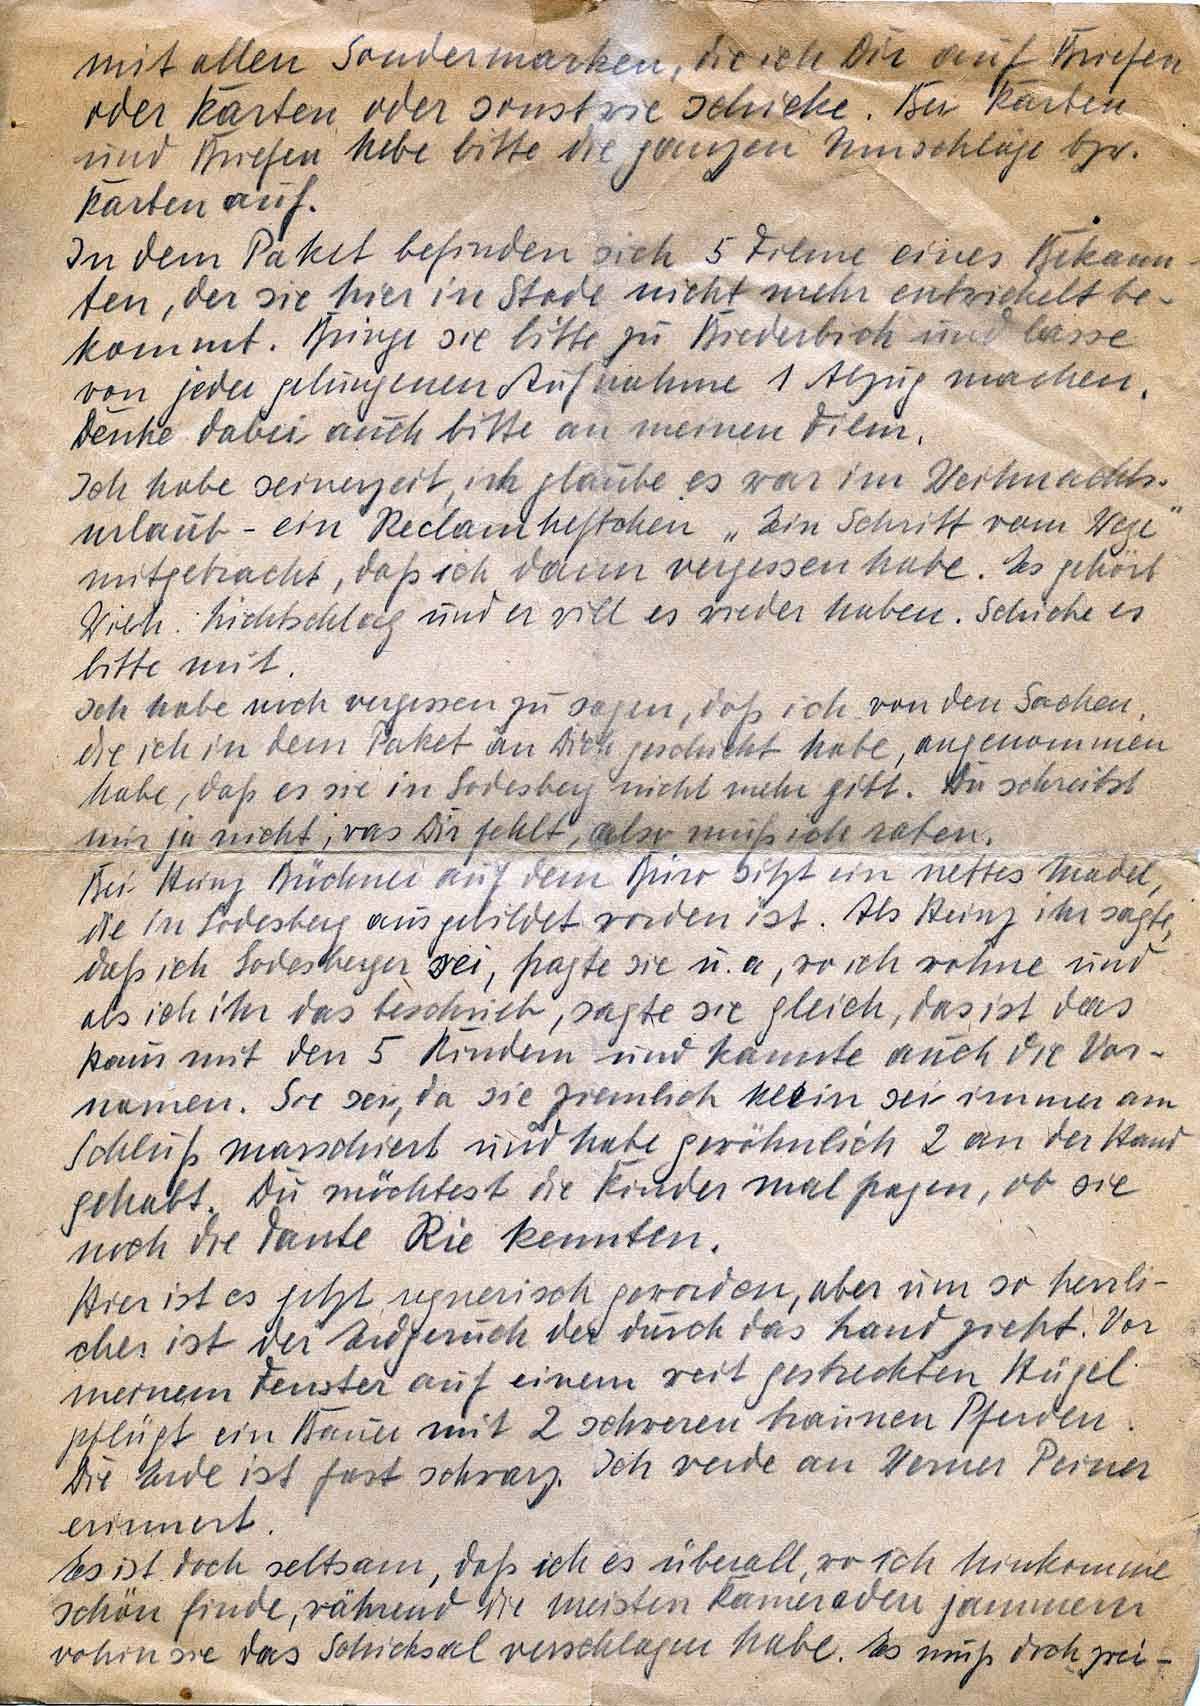 mit allen Sondermarken, die ich Dir auf Briefen
oder Karten oder sonstwie schicke. Bei Karten
und Briefen hebe bitte die ganzen Umschläge bzw.
Karten auf.
In dem Paket befinden sich 5 Filme eines Bekann-
ten, der sie hier in Stade nicht mehr entwickelt be-
kommt. Bringe sie bitte zu Biederbick und lasse
von jeder gelungenen Aufnahme 1 Abzug machen.
Denke dabei auch bitte an meinen Film.
Ich habe seinerzeit, ich glaube es war im Weihnachts-
urlaub - ein Reclamheftchen „Ein Schritt vom Wege"
mitgebracht, daß ich dann vergessen habe. Es gehört
und er will es wieder haben. Schicke es
bitte mit.
Ich habe noch vergessen zu sagen, daß ich von den Sachen,
die ich in dem Paket an Dich geschickt habe, angenommen
habe, daß es sie in Godesberg nicht mehr gibt. Du schreibst
mir ja nicht, was Dir fehlt, also muß ich raten.
Bei Heinz Büchner auf dem Büro sitzt ein nettes Mädel,
die in Godesberg ausgebildet worden ist. Als Heinz ihr sagte,
daß ich Godesberger sei, fragte sie u.a, wo ich wohne und
als ich ihr das beschrieb, sagte sie gleich, das ist das
Haus mit den 5 Kindern und kannte auch die Vor-
namen. Sie sei, da sie ziemlich klein sei immer am
Schluß marschiert und habe gewöhnlich 2 an der Hand
gehabt. Du möchtest die Kinder mal fragen, ob sie
noch die Tante Rie kennten.
Hier ist es jetzt regnerisch geworden, aber um so herrli-
cher ist der Erdgeruch der durch das Land zieht. Vor
meinem Fenster auf einem weit gestreckten Hügel
pflügt ein Bauer mit 2 schweren braunen Pferden.
Die Erde ist fast schwarz. Ich werde an Werner Peiner
erinnert.
Es ist doch seltsam, daß ich es überall, wo ich hinkomme
schön finde, während die meisten Kameraden jammern
wohin sie das Schicksal verschlagen habe. Es muß doch zwei-